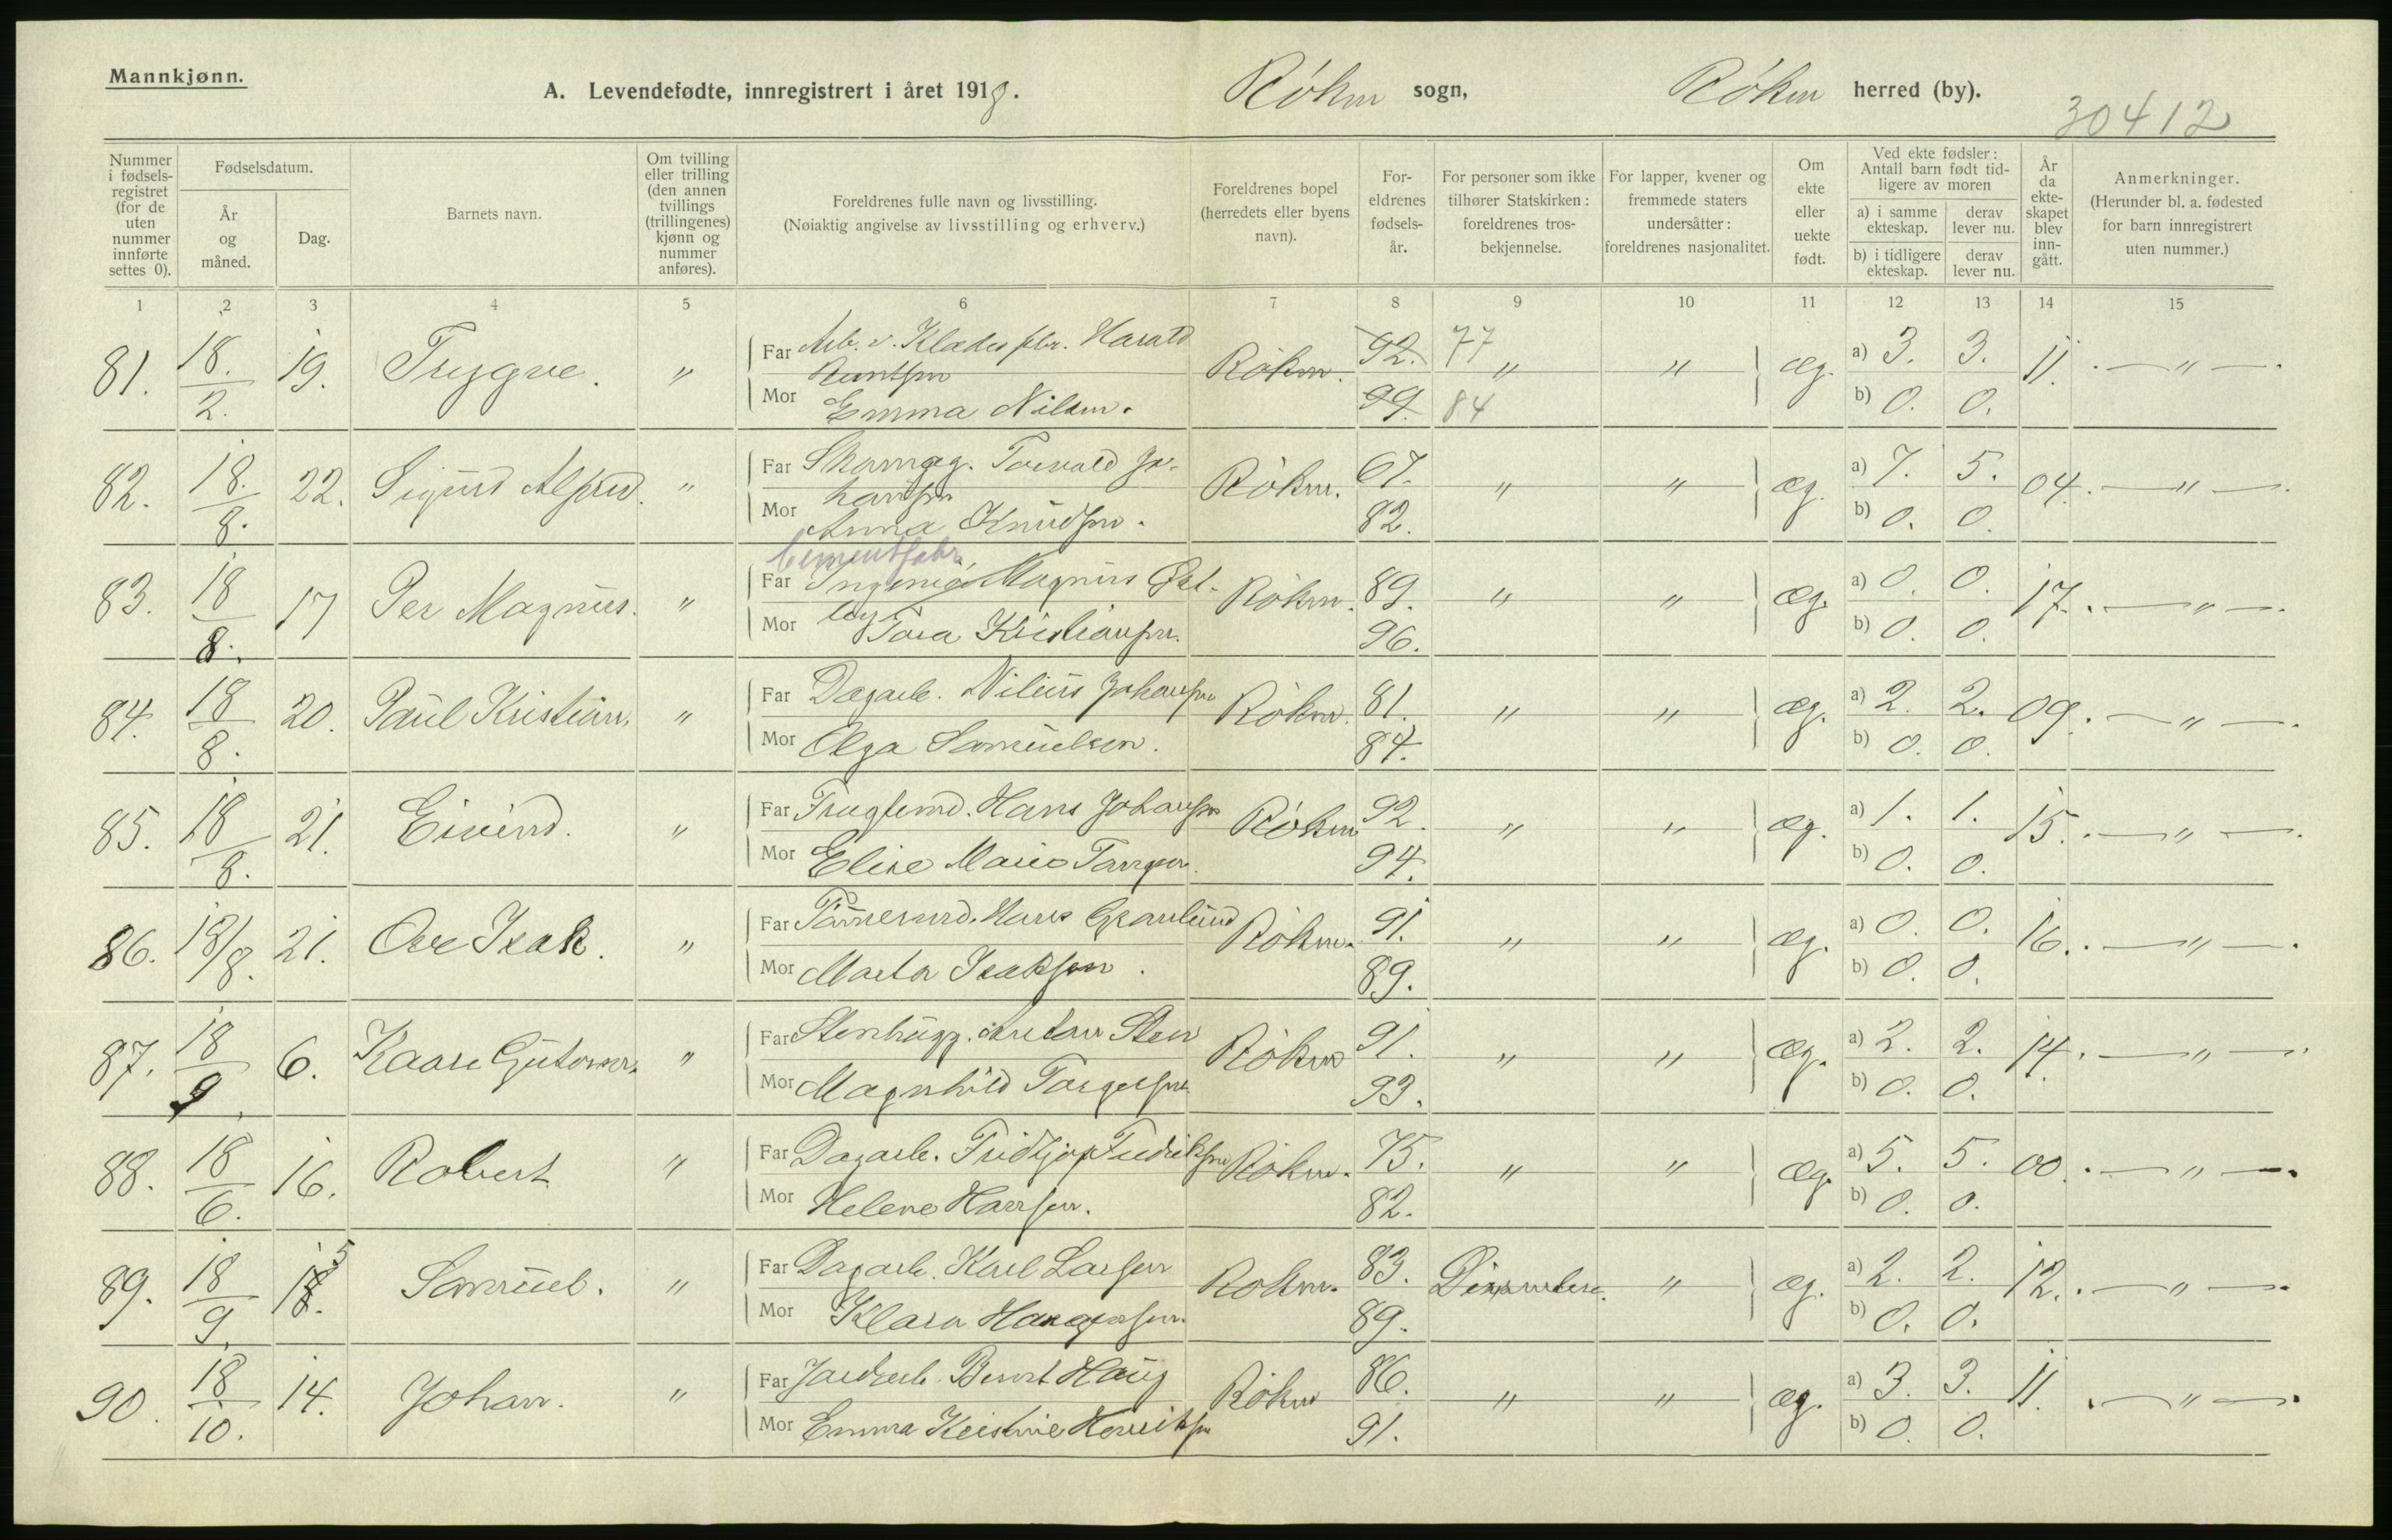 Mannkjønn.
A. Levendefødte, innregistrert i året 1918. Røken sogn, Røken herred (by).
30412
Nummer i fødselsregistret (for de uten nummer innførte settes 0).
Fødselsdatum.
År og måned.
Dag.
Barnets navn.
Om tvilling eller trilling (den annen tvillings (trillingenes) kjønn og nummer anføres).
Foreldrenes fulle navn og livsstilling.
(Nøiaktig angivelse av livsstilling og erhverv.)
Foreldrenes bopel (herredets eller byens navn).
Foreldrenes fødselsår.
For personer som ikke tilhører Statskirken: foreldrenes trosbekjennelse.
For lapper, kvener og fremmede staters undersåtter: foreldrenes nasjonalitet.
Om ekte eller uekte født.
Ved ekte fødsler: Antall barn født tidligere av moren
a) i samme ekteskap. derav lever nu.
b) i tidligere ekteskap. derav lever nu.
År da ekteskapet blev inngått.
Anmerkninger.
(Herunder bl. a. fødested for barn innregistrert uten nummer.)
1 2 3 4 5 6 7 8 9 10 11 12 13 14 15
81. 18./2. 19. Trygve. " Far Arb. v. Klædesfbr. Harald Knutsen Røken. 92. 77 " " æg. a) 3. 3. 11. — " —
Mor Emma Nilsen. 99. 84 b) 0. 0.
82. 18./8. 22. Sigurd Alfred. " Far Skomag. Torvald Johansen Røken. 67. " " æg. a) 7. 5. 04. — " —
Mor Anna Knudsen. 82. b) 0. 0.
Cementfabr.
83. 18/8. 17 Per Magnus. " Far Ingeniør Magnus Røken. 89. " " æg. a) 0. 0. 17. — " —
Mor Tora Kristiansen. 96. b) 0. 0.
84. 18/8. 20. Paul Kristian. " Far Dagarb. Nilius Johansen Røken. 81. " " æg. a) 2. 2. 09. — " —
Mor Olga Samuelsen. 84. b) 0. 0.
85. 18/8. 21. Eivind. " Far Hans Johansen Røken 92. " " æg. a) 1. 1. 15. — " —
Mor Elise Marie 94. b) 0. 0.
86. 18/8. 21. Ove Isak. " Far Hans Granlund Røken. 91. " " æg. a) 0. 0. 16. — " —
Mor Marta Isaksen. 89. b) 0. 0.
87. 18/9. 6. Kaare Gutorm. " Far Stenhugg. Anton Sten Røken 91. " " æg. a) 2. 2. 14. — " —
Mor Magnhild Torgersen 93. b) 0. 0.
88. 18/6. 16. Robert " Far Dagarb. Fridtjof Fredriksen Røken. 75. " " æg. a) 5. 5. 00. — " —
Mor Helene Hansen. 82. b) 0. 0.
89. 18/9. 18. 5 Samuel. " Far Dagarb. Karl Larsen Røken. 83. Dissentere. " æg. a) 2. 2. 12. — " —
Mor Klara 89. b) 0. 0.
90. 18/10. 14. Johan. " Far Jordarb. Bernt Haug Røken 86. " " æg. a) 3. 3. 11. — " —
Mor Emma Kristine Henriksen 91. b) 0. 0.